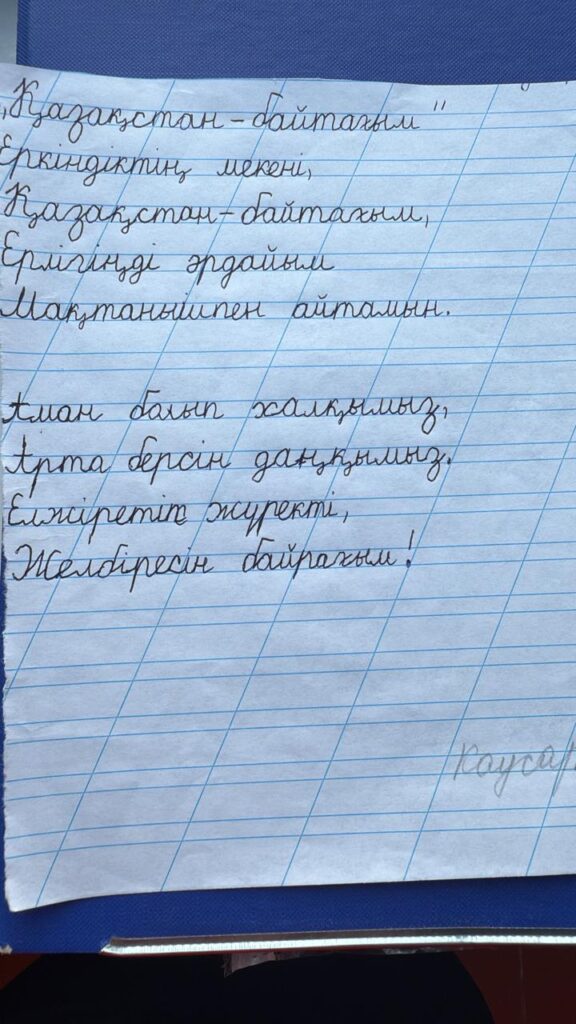 „Қазақстан - байтағым"
Еркіндіктің мекені,
Қазақстан - байтағым,
Ерлігіңді әрдайым
Мақтанышпен айтамын.
Аман болып халқымыз,
Арта берсін даңқымыз.
Елжіретіп жүректі,
Желбіресін байрағым!
Каусар